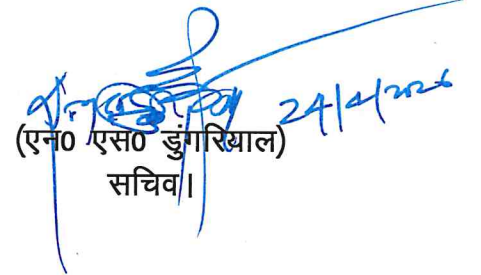 24/4/2026
(एन0 एस0 डुंगरियाल)
सचिव।